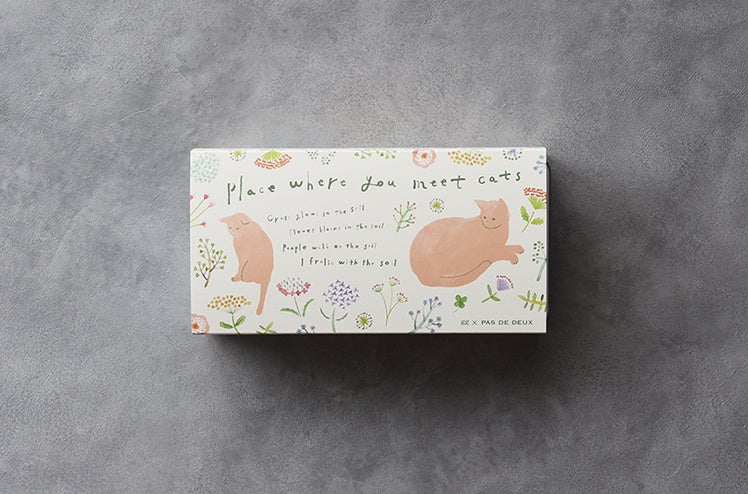 place where you meet cats
Grass glows in the soil
Flower blooms in the soil
People walk on the soil
I frolic with the soil
× PAS DE DEUX